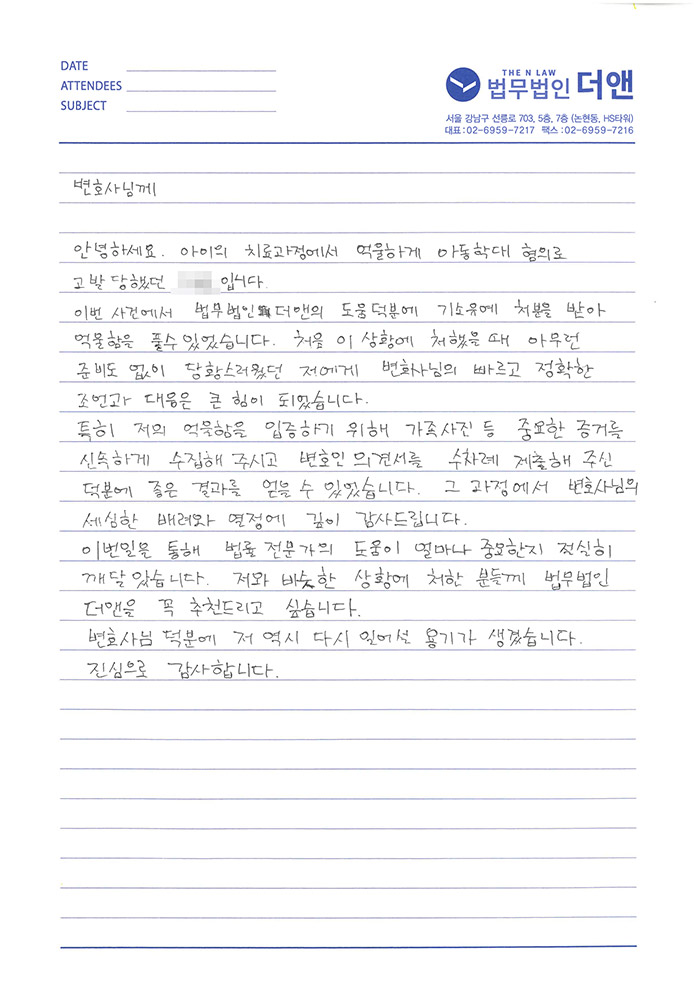 DATE
ATTENDEES
SUBJECT
THE N LAW
법무법인 더앤
서울 강남구 선릉로 703, 5층, 7층 (논현동, HS타워)
대표:02-6959-7217 팩스:02-6959-7216
변호사님께
안녕하세요. 아이의 치료과정에서 억울하게 아동학대 혐의로
고발 당했던 입니다.
이번 사건에서 법무법인 더앤의 도움덕분에 기소유예 처분을 받아
억울함을 풀수있었습니다. 처음 이 상황에 처했을 때 아무런
준비도 없이 당황스러웠던 저에게 변호사님의 빠르고 정확한
조언과 대응은 큰 힘이 되었습니다.
특히 저의 억울함을 입증하기 위해 가족사진 등 중요한 증거를
신속하게 수집해 주시고 변호인 의견서를 수차례 제출해 주신
덕분에 좋은 결과를 얻을 수 있었습니다. 그 과정에서 변호사님의
세심한 배려와 열정에 깊이 감사드립니다.
이번일을 통해 법률 전문가의 도움이 얼마나 중요한지 절실히
깨달았습니다. 저와 비슷한 상황에 처한 분들께 법무법인
더앤을 꼭 추천드리고 싶습니다.
변호사님 덕분에 저 역시 다시 일어설 용기가 생겼습니다.
진심으로 감사합니다.